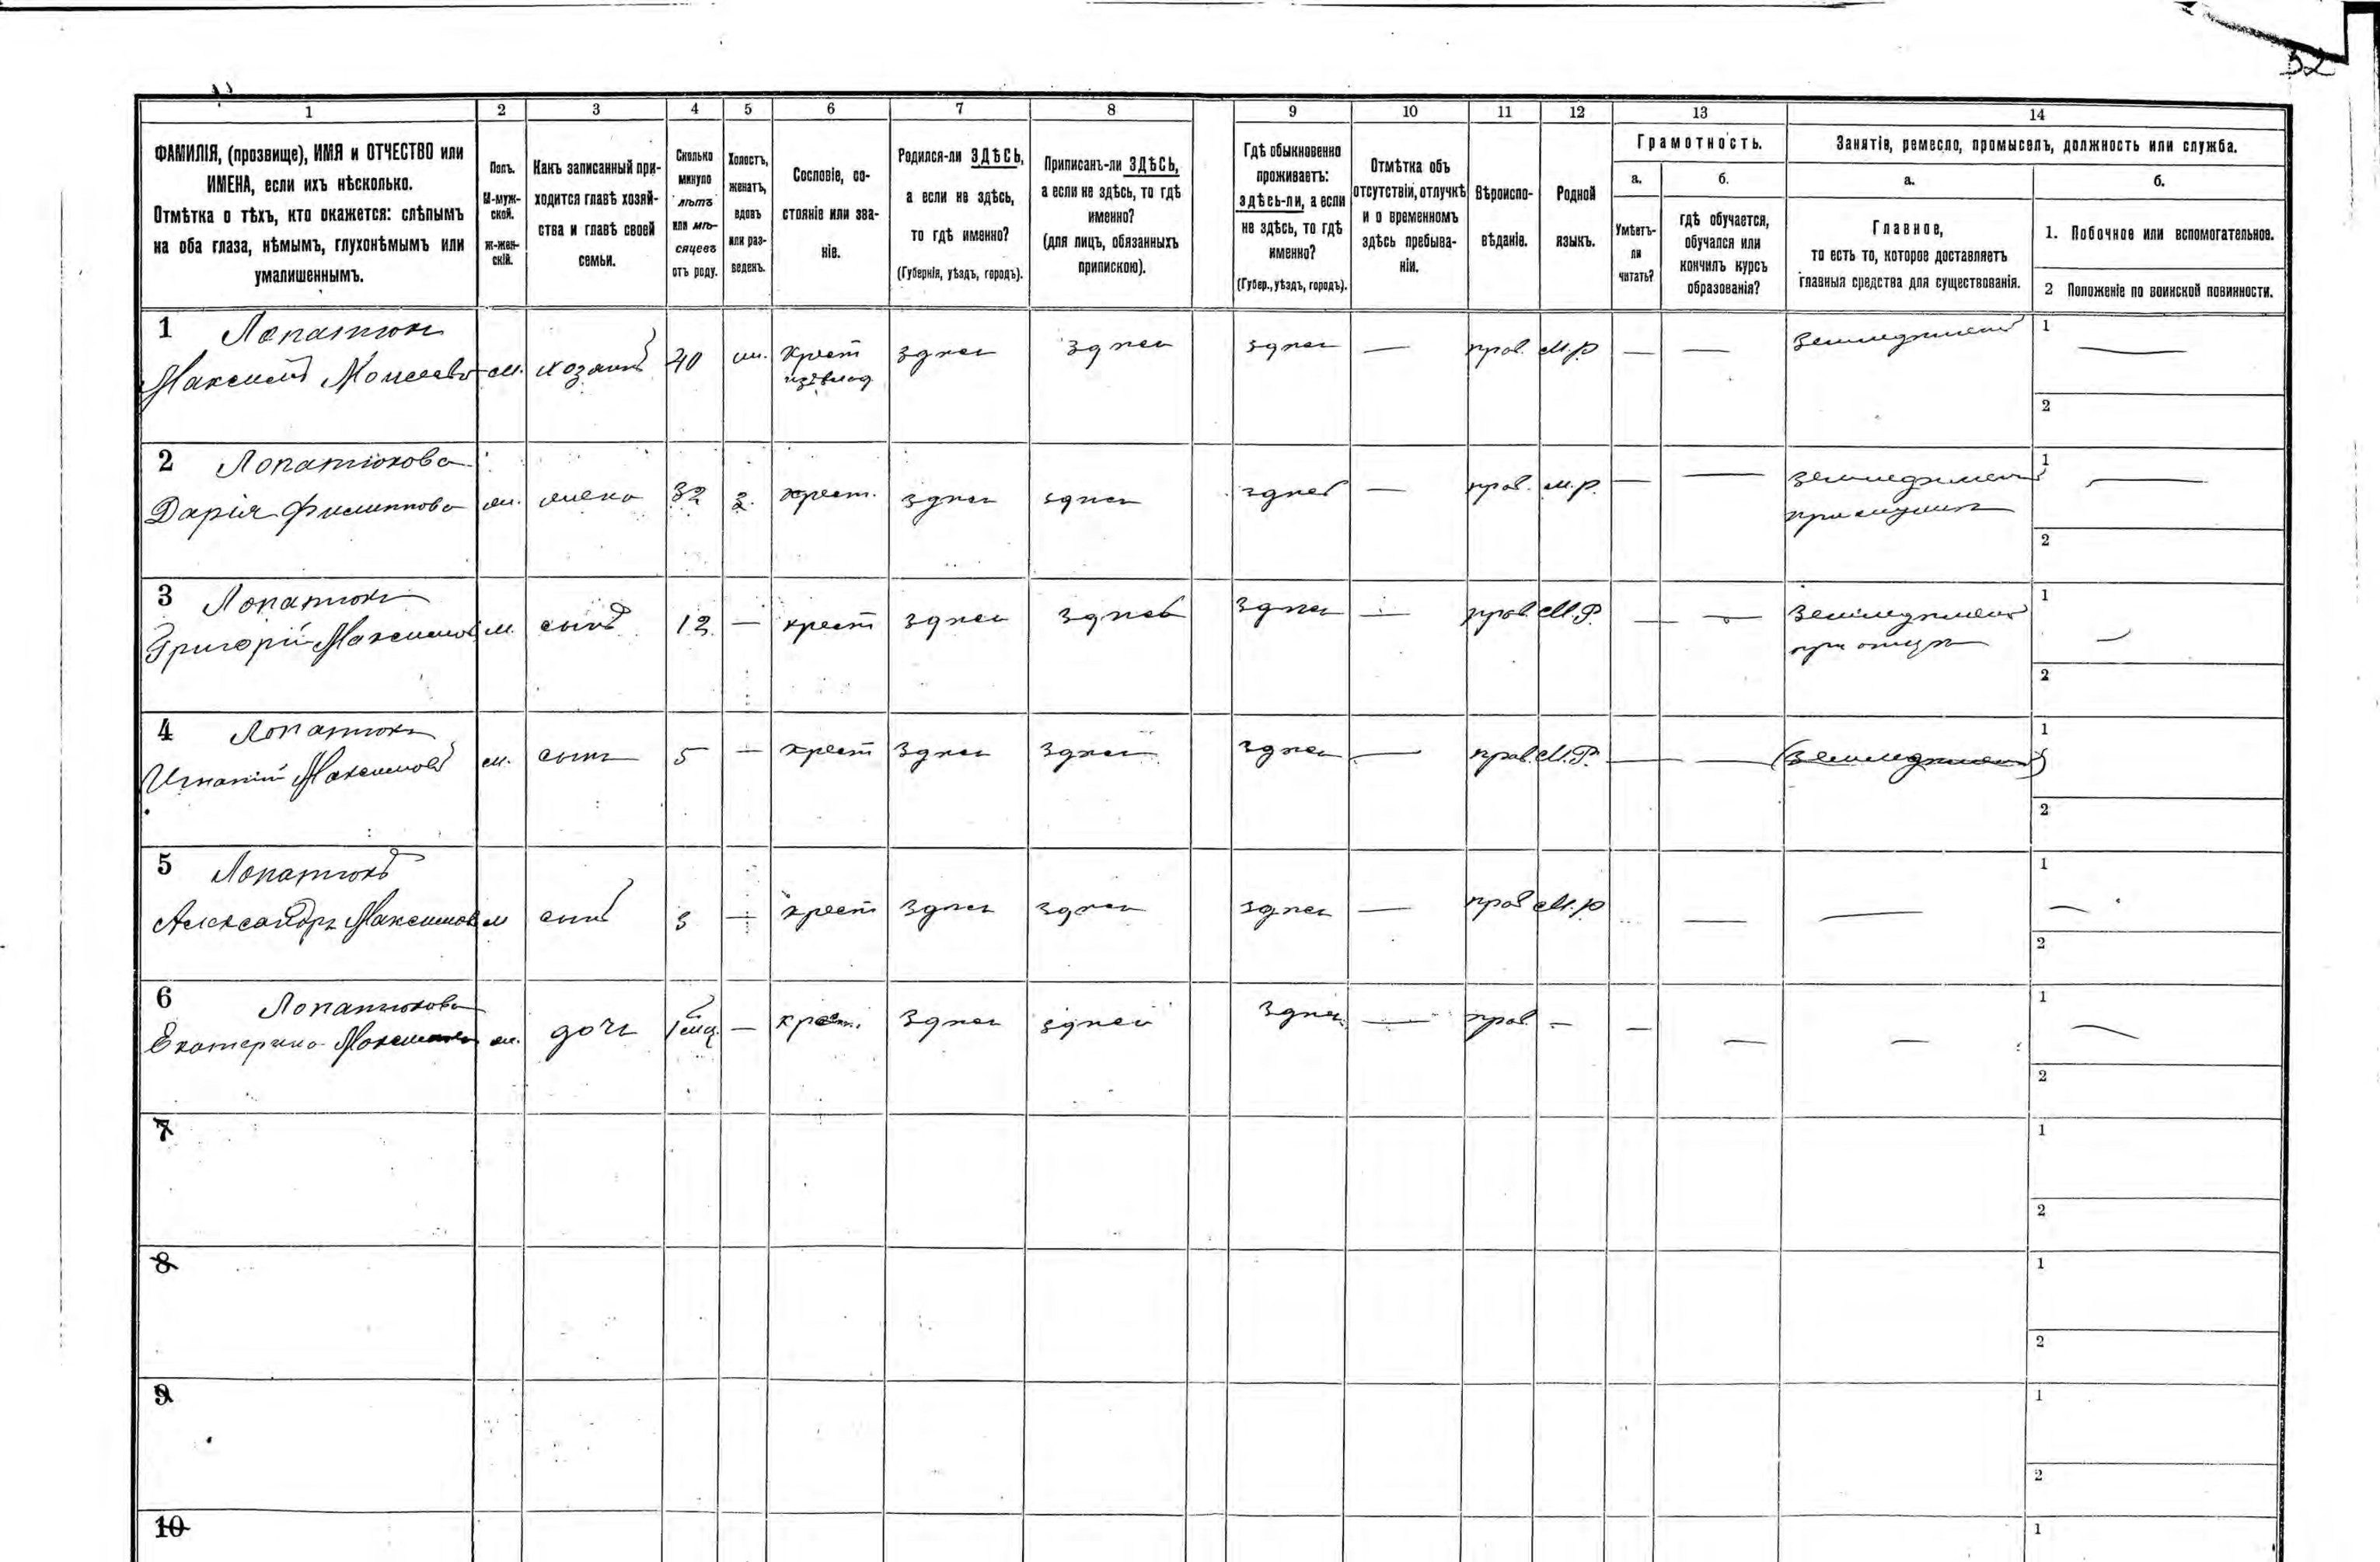 52
1 2 3 4 5 6 7 8 9 10 11 12 13 14
ФАМИЛІЯ, (прозвище), ИМЯ и ОТЧЕСТВО или
ИМЕНА, если ихъ нѣсколько.
Отмѣтка о тѣхъ, кто окажется: слѣпымъ
на оба глаза, нѣмымъ, глухонѣмымъ или
умалишеннымъ.
Полъ.
М-муж-
ской.
Ж-жен-
скій.
Какъ записанный при-
ходится главѣ хозяй-
ства и главѣ своей
семьи.
Сколько
минуло
лѣтъ
или мѣ-
сяцевъ
отъ роду.
Холостъ,
женатъ,
вдовъ
или раз-
веденъ.
Сословіе, со-
стояніе или зва-
ніе.
Родился-ли ЗДѢСЬ,
а если не здѣсь,
то гдѣ именно?
(Губернія, уѣздъ, городъ).
Приписанъ-ли ЗДѢСЬ,
а если не здѣсь, то гдѣ
именно?
(для лицъ, обязанныхъ
припискою).
Гдѣ обыкновенно
проживаетъ:
здѣсь-ли, а если
не здѣсь, то гдѣ
именно?
(Губер., уѣздъ, городъ).
Отмѣтка объ
отсутствіи, отлучкѣ
и о временномъ
здѣсь пребыва-
ніи.
Вѣроиспо-
вѣданіе.
Родной
языкъ.
Грамотность.
а.
Умѣетъ-
ли
читать?
б.
гдѣ обучается,
обучался или
кончилъ курсъ
образованія?
Занятіе, ремесло, промыселъ, должность или служба.
а.
Главное,
то есть то, которое доставляетъ
главныя средства для существованія.
б.
1. Побочное или вспомогательное.
2 Положеніе по воинской повинности.
1 Лопатюкъ
Максимъ Моисеевъ м. хозяинъ 40 жн. крест здѣсь здѣсь здѣсь — прав. М.р — — Земледѣлецъ 1 —
2
2 Лопатюкова
Дарія Филиппова ж. жена 32 з. крест. здѣсь здѣсь здѣсь — прав. м.р. — — Земледѣлецъ 1 —
при мужѣ
2
3 Лопатюкъ
Григорій Максимовъ м. сынъ 12 — крест здѣсь здѣсь здѣсь — прав. М.Р. — — Земледѣлецъ 1 —
при отцѣ
2
4 Лопатюкъ
Игнатій Максимовъ м. сынъ 5 — крест здѣсь здѣсь здѣсь — прав. М.Р. — — (Земледѣлецъ) 1
2
5 Лопатюкъ
Александръ Максимовъ м сынъ 3 — крест здѣсь здѣсь здѣсь — прав М.р — — 1 —
2
6 Лопатюкова
Екатерина Максимова ж. дочь 1 мц. — крест. здѣсь здѣсь здѣсь — прав. — — — — 1 —
2
7 1
2
8 1
2
9 1
2
10 1